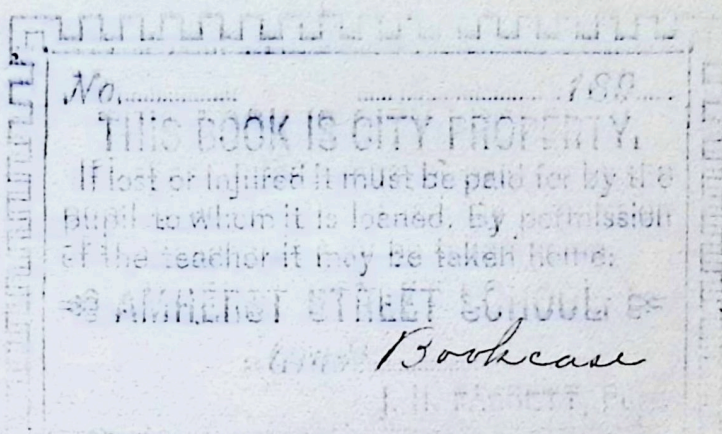 No. 189
THIS BOOK IS CITY PROPERTY.
If lost or injured it must be paid for by the
pupil to whom it is loaned. By permission
of the teacher it may be taken home.
AMHERST STREET SCHOOL
Bookcase